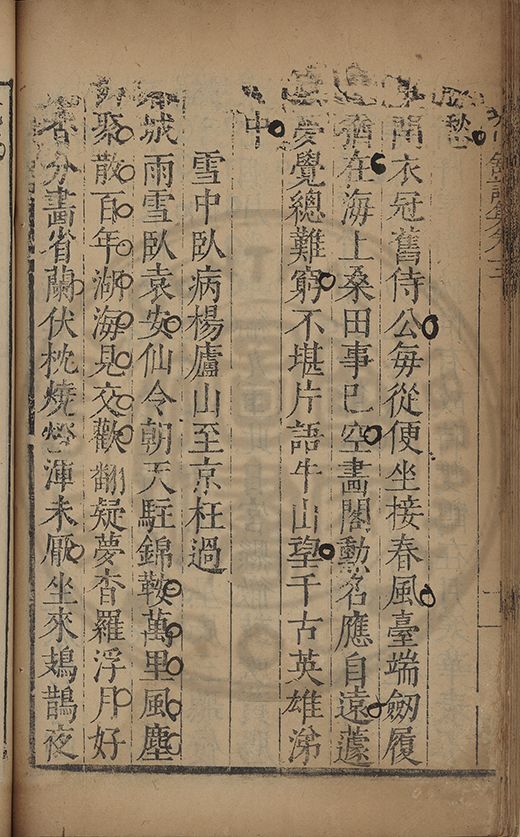 愁
閒衣冠舊侍公每從便坐接春風臺端劒履
猶在海上桑田事已空畫閣勳名應自遠蘧
夢覺總難窮不堪片語牛山望千古英雄涕
中
雪中臥病楊廬山至京枉過
城雨雪臥袁安仙令朝天駐錦鞍萬里風塵
聚散百年湖海見交歡翻疑夢杳羅浮月好
分畵省蘭伏枕燒燈渾未厭坐來鳷鵲夜